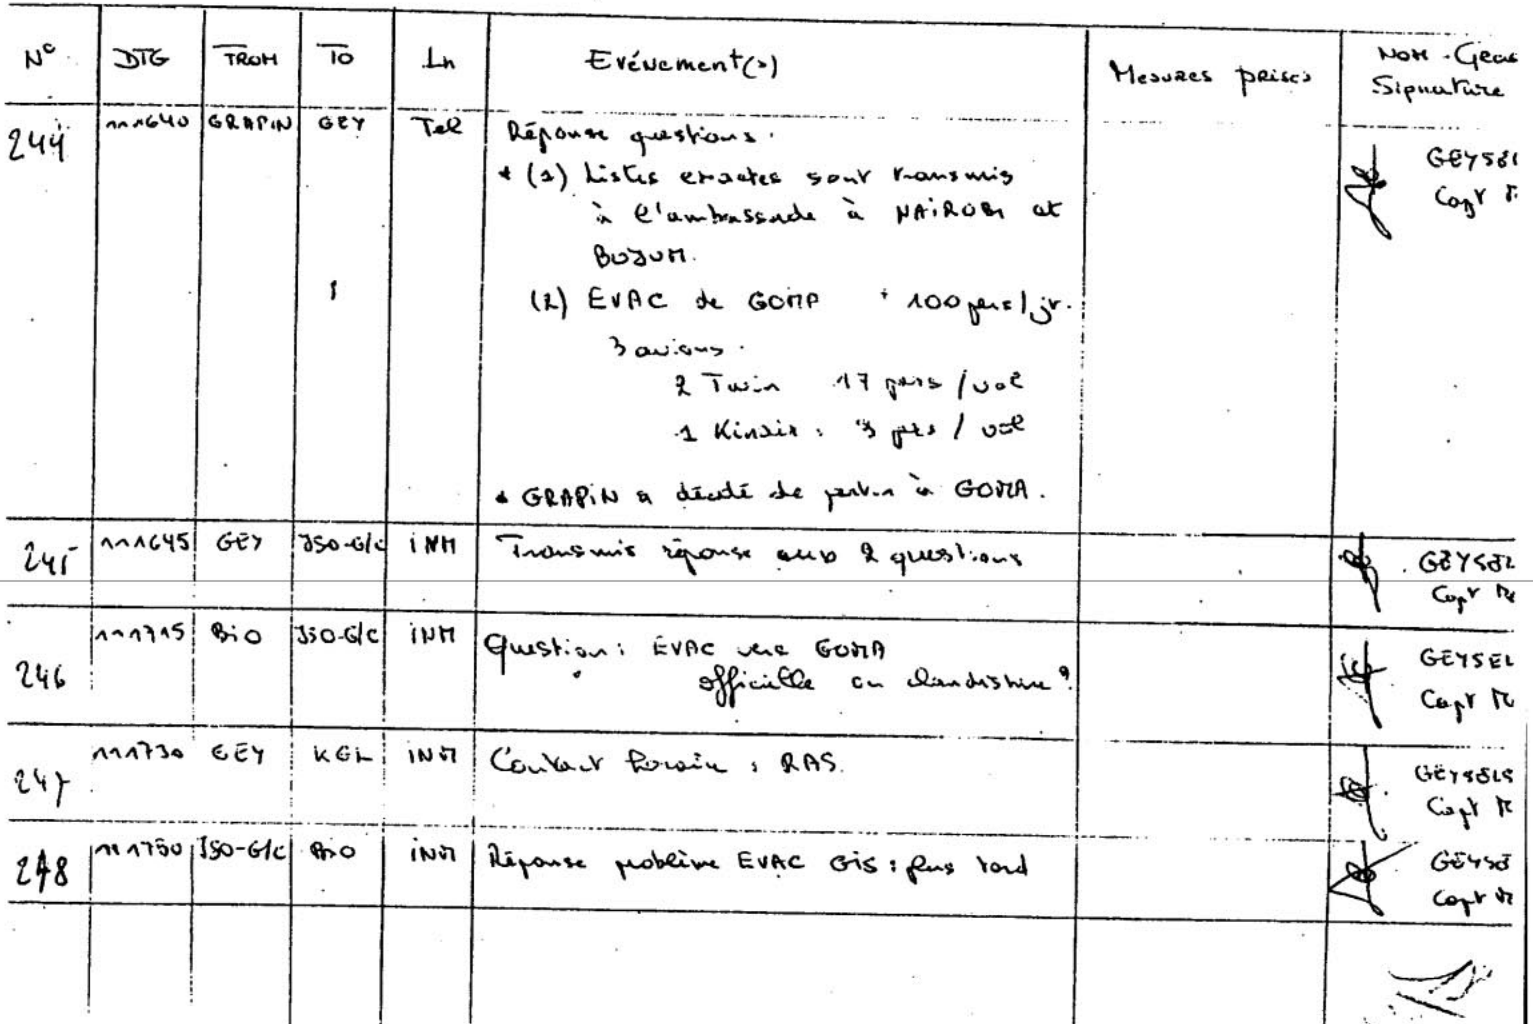 N° DTG FROM TO Ln Evénement(s) Mesures prises Nom - Grade
Signature
244 111640 GRAPIN GEY Tel Réponse questions.
* (1) Listes exactes sont transmis
à l'ambassade à NAIROBI et
BUJUM.
(2) EVAC de GOMA 100 pers/jr.
3 avions.
2 Twin 17 pers / vol
1 Kinair : 3 pers / vol
* GRAPIN a décidé de partir à GOMA.
GEYSEL
Capt
245 111645 GEY JSO-G/C INM Transmis réponse aux 2 questions
GEYSEL
Capt
246 111715 BIO JSO-G/C INM Question : EVAC vers GOMA
officielle ou clandestine ?
GEYSEL
Capt
247 111730 GEY KGL INM Contact horaire : RAS.
GEYSELS
Capt
248 111750 JSO-G/C BIO INM Réponse problème EVAC GIS : plus tard
GEYSE
Capt